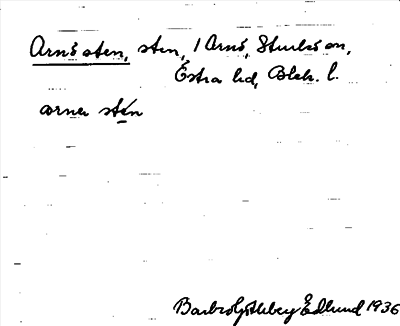 Arnö sten, sten, 1 Arnö, Sturkö sn,
Östra hd, Blek. l.
arnen stén
Barbro Göthberg Edlund 1936